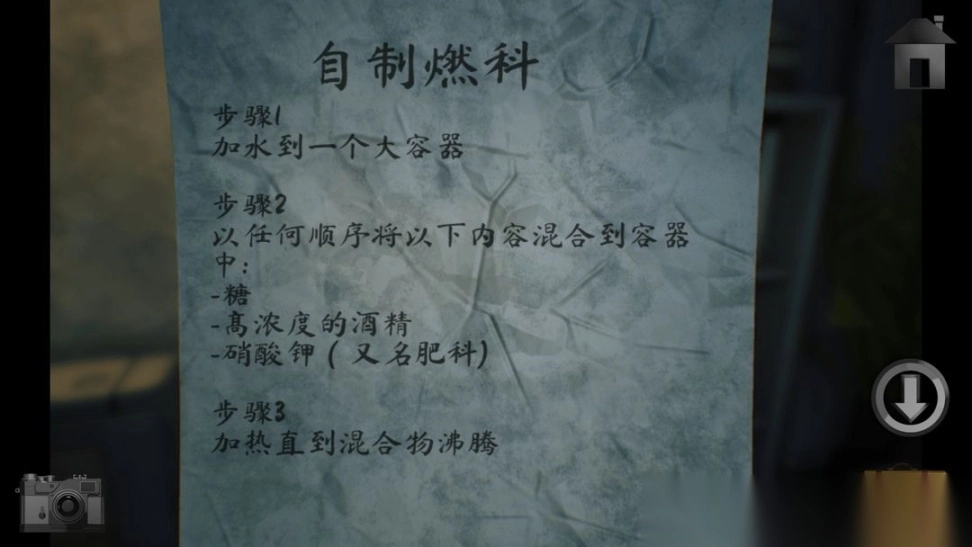 自制燃科
步骤1
加水到一个大容器
步骤2
以任何顺序将以下内容混合到容器
中：
-糖
-高浓度的酒精
-硝酸钾 ( 又名肥科)
步骤3
加热直到混合物沸腾